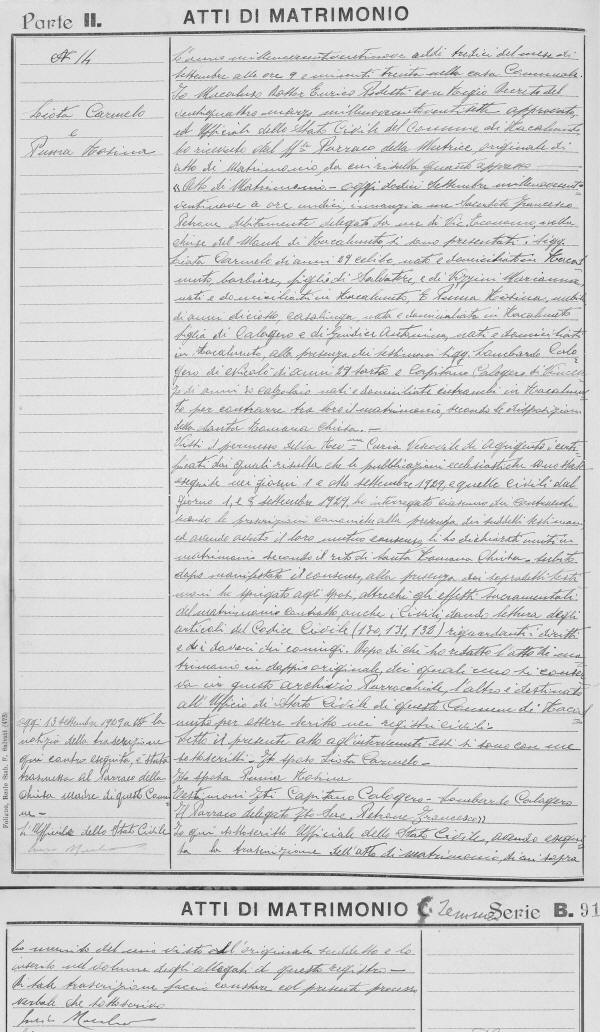 Parte II.
ATTI DI MATRIMONIO
N° 14
Sciota Carmelo
e
Puma Rosina
L'anno millenovecentoventinove addì tredici del mese di
Settembre alle ore 9 e minuti trenta nella casa Comunale
Io Macaluso Dottor Enrico Podestà con Regio Decreto del
ventiquattro marzo millenovecentoventisette approvato,
ed Ufficiale dello Stato Civile del Comune di Racalmuto
ho ricevuto dal Parroco della Matrice, originale di
atto di Matrimonio, da cui risulta quanto appresso
"Atto di Matrimonio - Oggi dodici Settembre millenovecento
ventinove a ore undici, innanzi a me Sacerdote Francesco
Petrone debitamente delegato da me di Vic. Economo, nella
chiesa del Monte di Racalmuto, si sono presentati i Sigg.
Sciota Carmelo di anni 29 celibe, nato e domiciliato in Racal
muto, barbiere, figlio di Salvatore, e di Vizzini Marianna,
nati e domiciliati in Racalmuto, E Puma Rosina, nubile
di anni diciotto, casalinga, nata e domiciliata in Racalmuto
figlia di Calogero e di Giudice Antonina, nati e domiciliati
in Racalmuto, alla presenza dei testimoni Sigg. Lombardo Calo
gero di Nicolò di anni 29 sarto e Capitano Calogero di Vincen
zo di anni 20 calzolaio nati e domiciliati entrambi in Racalmu
to per contrarre tra loro il matrimonio, secondo le disposizioni
della Santa Romana Chiesa. -
Visti il permesso della Rev.ma Curia Vescovile di Agrigento i certi
ficati dai quali risulta che le pubblicazioni ecclesiastiche sono state
eseguite nei giorni 1 e otto settembre 1929, e quelle civili dal
giorno 1, e 8 settembre 1929, ho interrogato ciascuno dei contraenti
secondo le prescrizioni canoniche alla presenza dei suddetti testimoni
ed avendo avuto il loro mutuo consenso, li ho dichiarati uniti in
matrimonio secondo il rito di Santa Romana Chiesa. - Subito
dopo manifestato il consenso, alla presenza dei sopradetti testi
moni ho spiegato agli sposi, oltrechè gli effetti Sacramentali
del matrimonio contratto, anche i Civili, dando lettura degli
articoli del Codice Civile (130, 131, 132) riguardanti i diritti
e i doveri dei coniugi. Dopo di che ho redatto l'atto di ma
trimonio in doppio originale, dei quali uno si conser
va in questo archivio Parrocchiale, l'altro è destinato
all'Ufficio di Stato Civile di questo Comune di Racal
muto per essere scritto nei registri civili. -
Letto il presente atto agl'intervenuti essi si sono con me
sottoscritti. Lo sposo Sciota Carmelo -
La sposa Puma Rosina
Testimoni Fti Capitano Calogero - Lombardo Calogero
Il Parroco delegato fto Sac. Petrone Francesco"
Io qui sottoscritto Ufficiale dello Stato Civile, avendo esegui
ta la trascrizione dell'atto di matrimonio, di cui sopra
Oggi 13 Settembre 1929 la
notizia della trascrizione
qui contro eseguita, è stata
trasmessa al Parroco della
Chiesa Madre di questo Comu
ne -
L'Ufficiale dello Stato Civile
ATTI DI MATRIMONIO
Serie B. 91
ho munito del mio visto l'originale suddetto e lo
inserito nel volume degli allegati di questo registro -
Di tale trascrizione faccio constare col presente processo
verbale che sottoscrivo